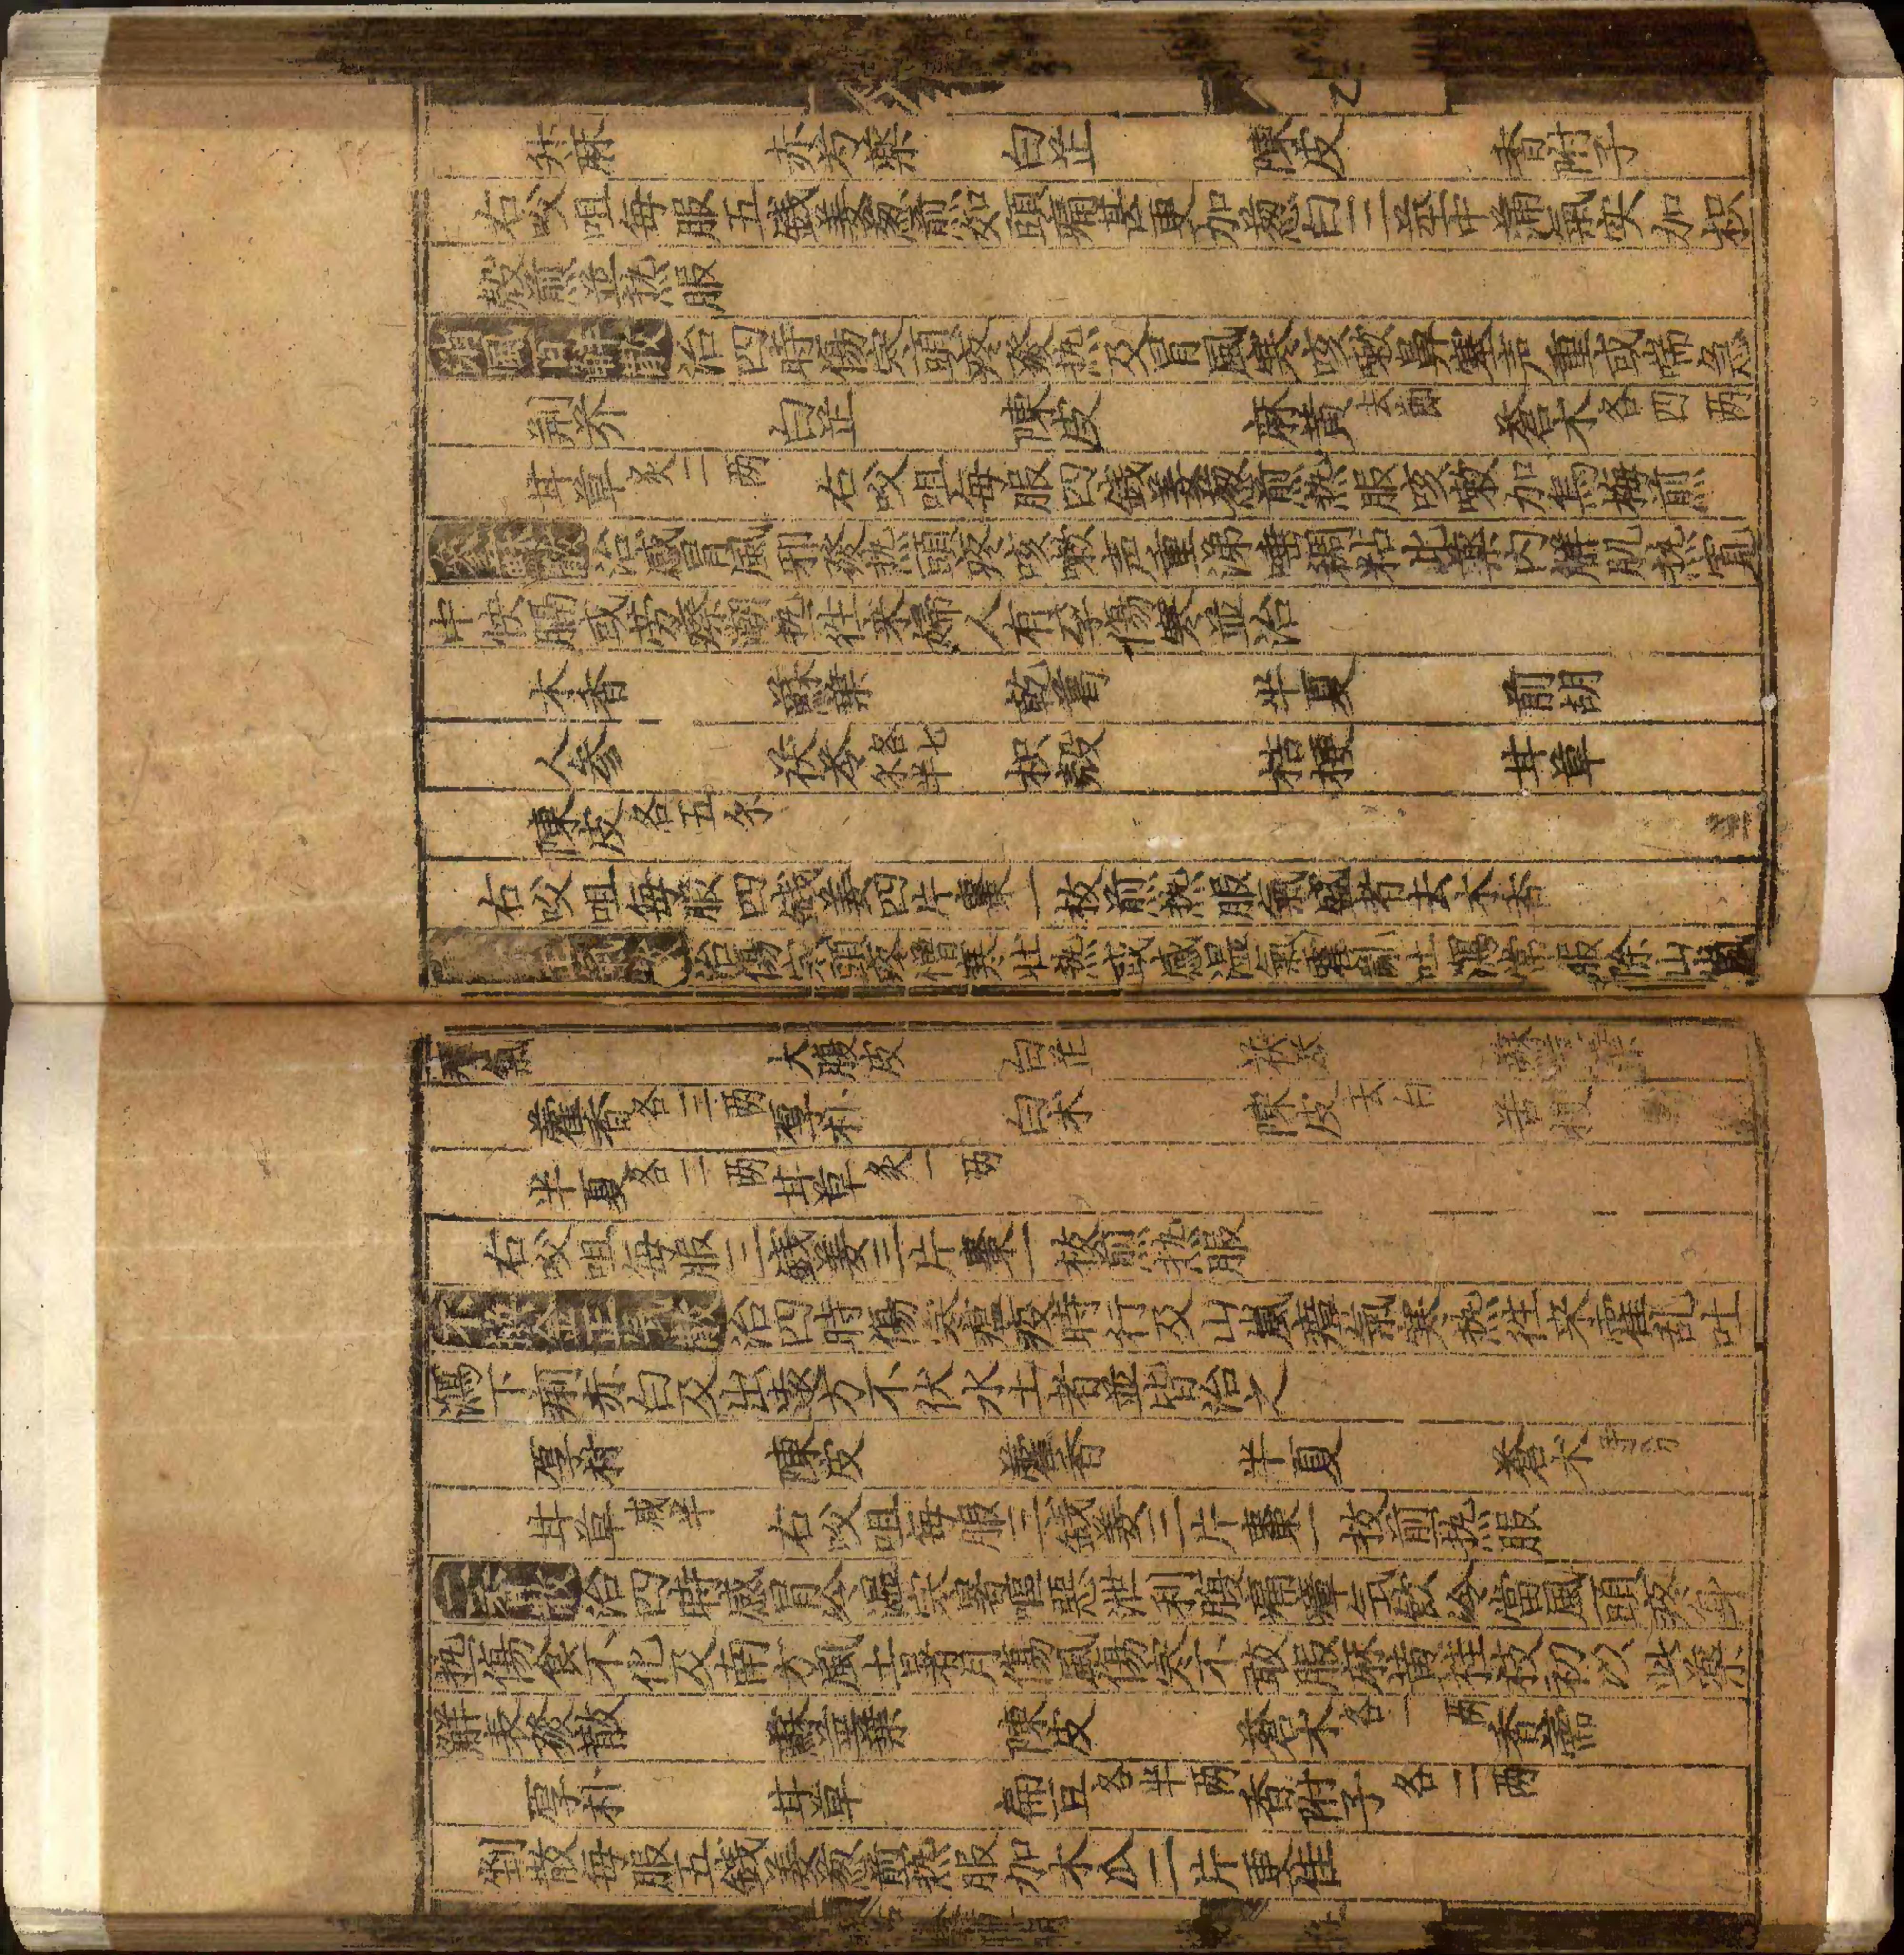 升麻　赤芍藥　白芷　陳皮　香附子
右㕮咀每服五錢姜葱煎治頭痛甚更加葱白三莖中滿氣实加枳
殼煎並热服
消風百解散治四時傷寒頭疼發热及冒風寒咳嗽鼻塞声重或喘急
荊芥　白芷　陳皮　麻黃去節　蒼术各四兩
甘草炙二兩　右㕮咀每服四錢姜葱煎热服咳嗽加烏梅煎
參蘇飲治感冒風邪發热頭疼咳嗽声重涕唾稠粘此藥内解肌热寬
中快膈或劳瘵潮热往来婦人有孕傷寒並治
木香　蘇葉　乾葛　半夏　前胡
人參　茯苓各七彔半　枳殼　桔梗　甘草
陳皮各五彔
右㕮咀每服四錢姜四片棗一枚煎热服氣盛者去木香
治傷寒頭疼憎寒壮热或感湿氣霍乱吐瀉常服除山嵐
瘴氣　大腹皮　白芷　茯苓
藿香各三兩　厚朴　白术　陳皮去白　苦梗
半夏各二兩　甘草炙一兩
右㕮咀每服三錢姜三片棗一枚煎热服
不換金正氣散治四時傷寒瘟疫時行及山嵐瘴氣寒热往来霍乱吐
瀉下痢赤白及出遠方不伏水土者並皆治之
厚朴　陳皮　藿香　半夏　蒼术
甘草减半　右㕮咀每服三錢姜三片棗一枚煎热服
治四時感冒冷湿寒暑嘔惡泄利腹痛瘴氣飲冷當風頭疼身
热傷食不化及南方風土暑月傷風傷寒不敢服麻黃桂枝初以此藥
觧表發散　蘇葉　陳皮　蒼术各一兩　香薷
厚朴　甘草　扁豆各半兩　香附子各二兩
剉散每服五錢姜葱煎热服加木瓜二片更佳